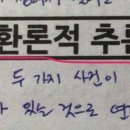 환론적 추론
두 가지 사건이
있는 것으로 연